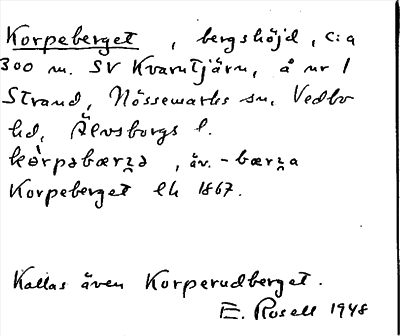 Korpeberget, bergshöjd, c:a
300 m. SV Kvarntjärn, å nr 1
Strand, Nössemarks sn, Vedbo
hd, Älvsborgs l.
kò̀rpəbærʒə, äv. -bærʒa
Korpeberget Ek 1867.
Kallas även Korperudberget.
E. Rosell 1948